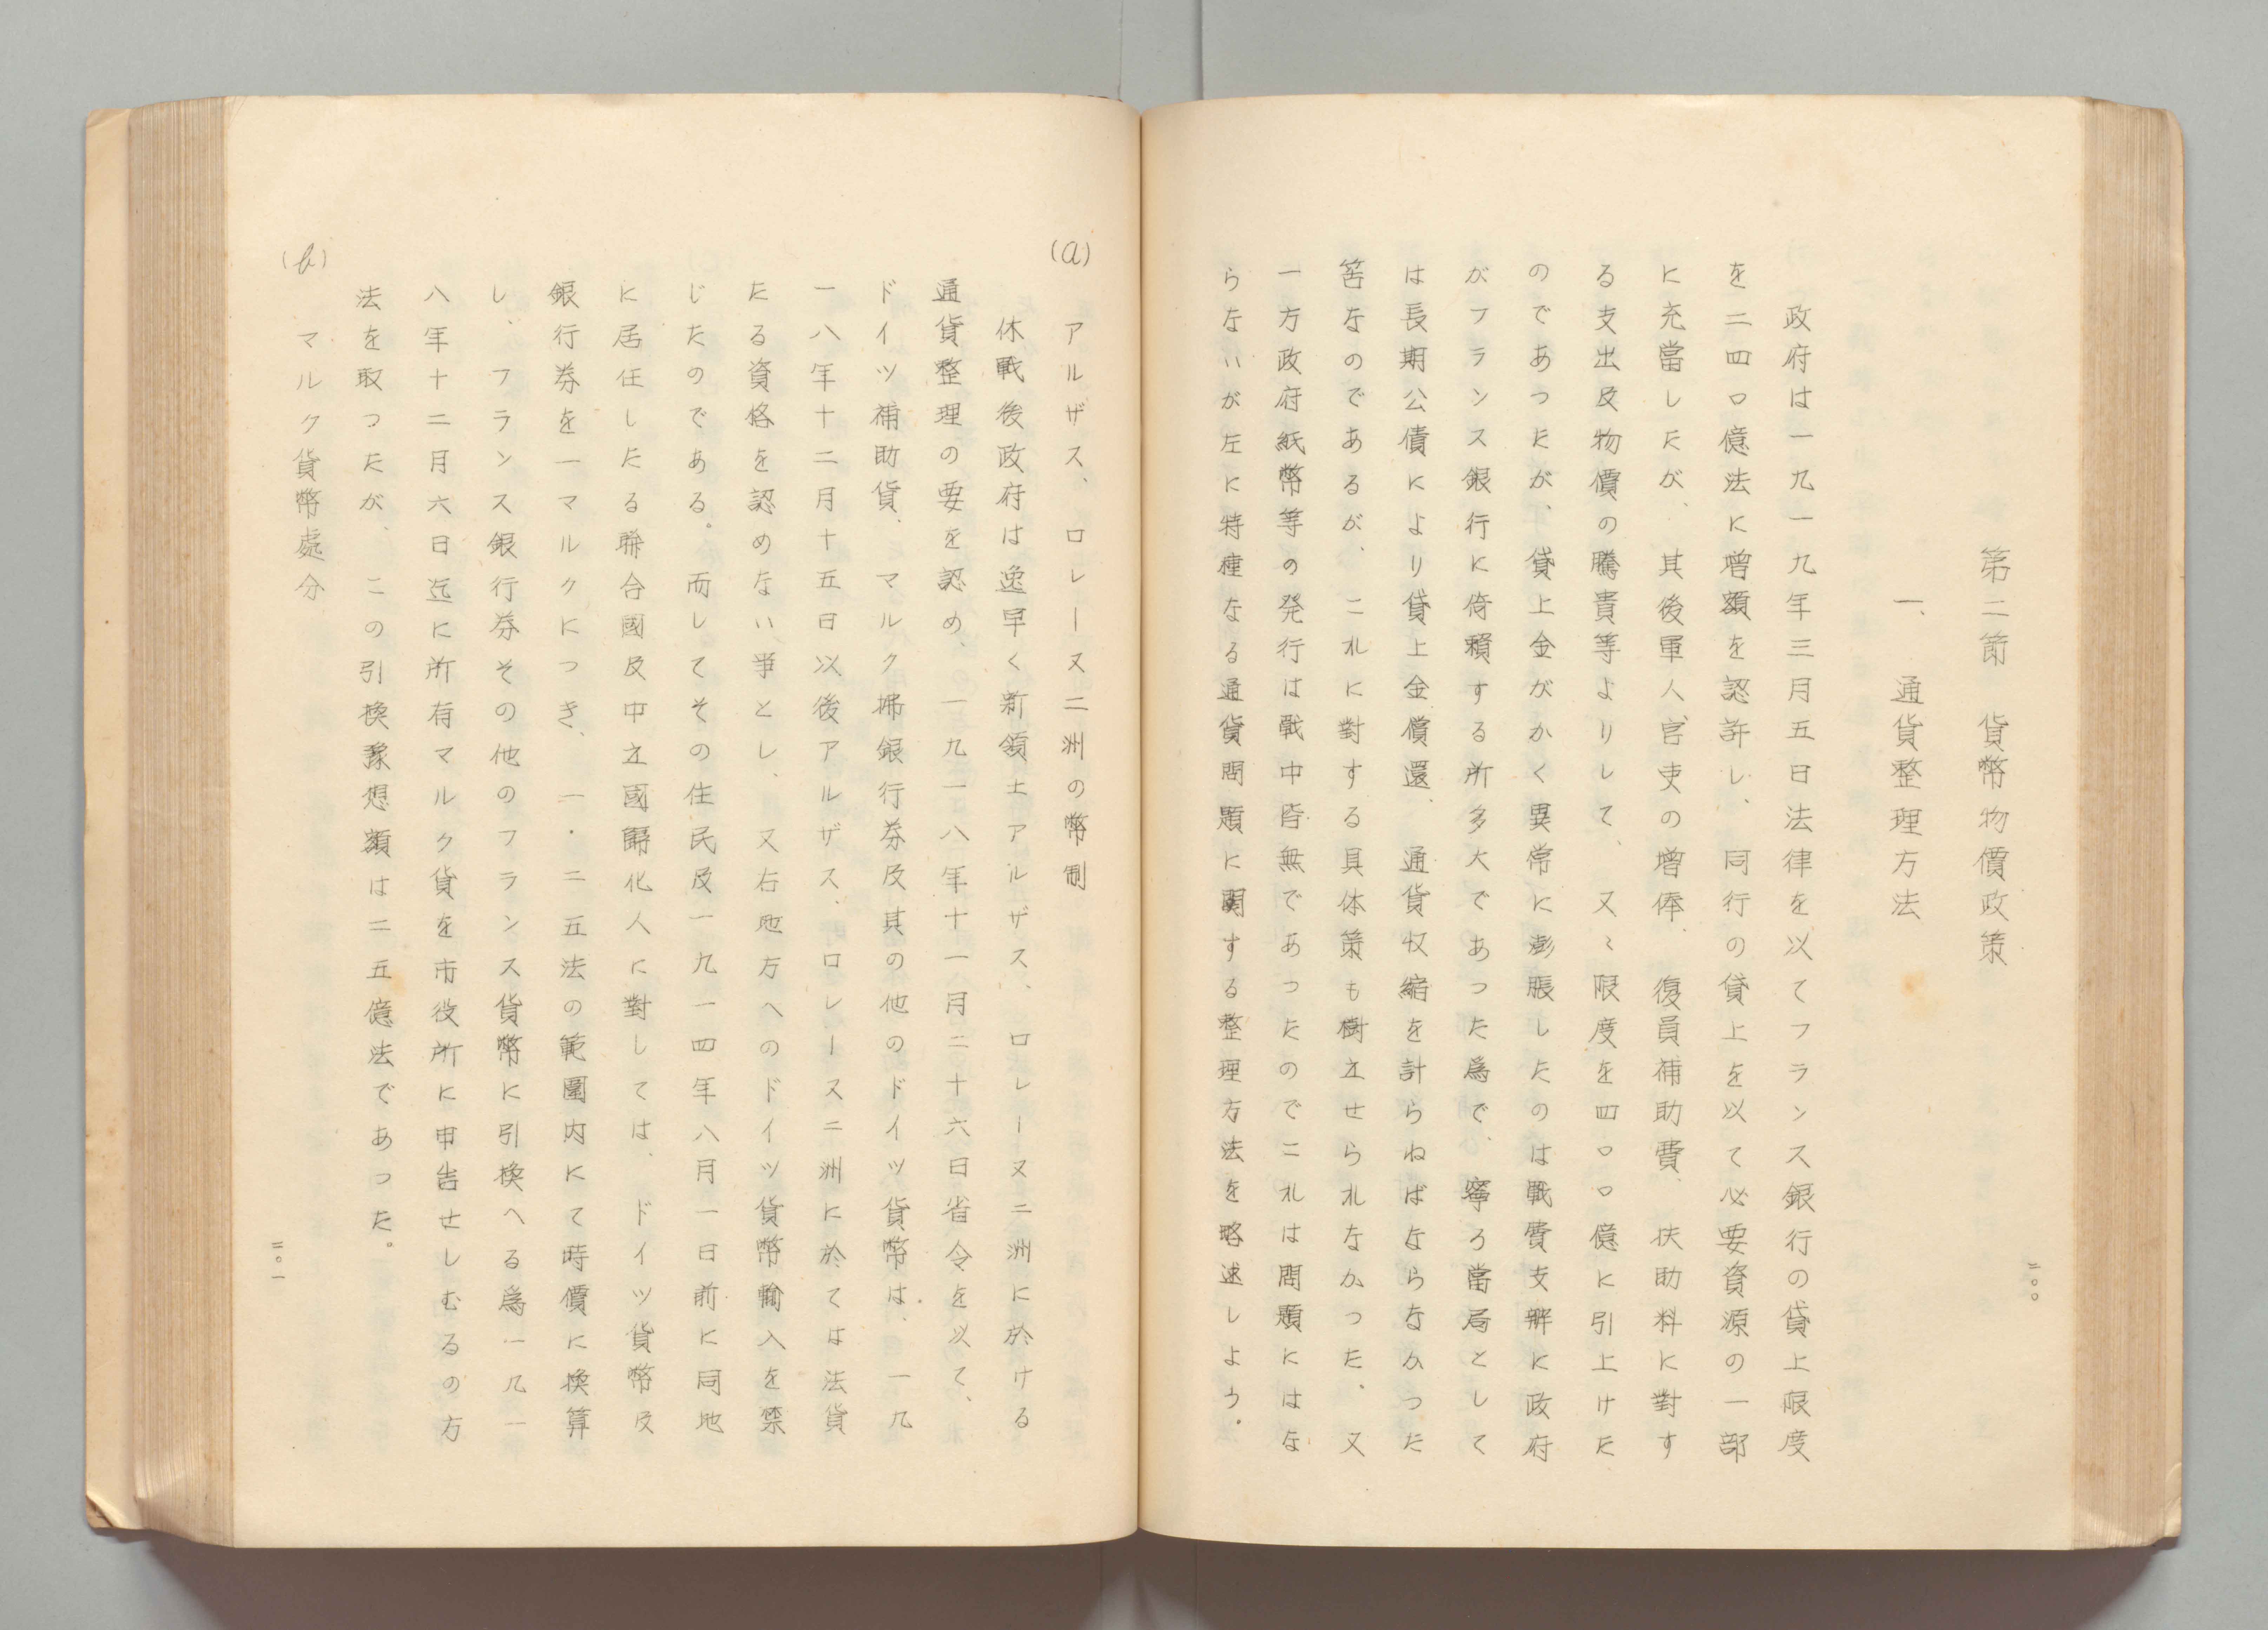 第二節 貨幣物價政策
一、通貨整理方法
政府は一九一九年三月五日法律を以てフランス銀行の貸上限度
を二四〇億法に増額を認許し、同行の貸上を以て必要資源の一部
に充當したが、其後軍人官吏の増俸、復員補助費、扶助料に對す
る支出及物價の騰貴等よりして、又々限度を四〇〇億に引上けた
のであつたが、貸上金がかく異常に澎脹したのは戰費支辨に政府
がフランス銀行に倚賴する所多大であつた爲で、寧ろ當局として
は長期公債により貸上金償還、通貨収縮を計らねばならなかつた
筈なのであるが、これに對する具体策も樹立せられなかつた、又
一方政府紙幣等の発行は戰中皆無であつたのでこれは問題にはな
らないが左に特種なる通貨問題に関する整理方法を略述しよう。
二〇〇
(a) アルザス、ロレーヌ二洲の幣制
休戰後政府は逸早く新領土アルザス、ロレーヌ二洲に於ける
通貨整理の要を認め、一九一八年十一月二十六日省令を以て、
ドイツ補助貨、マルク拂銀行券及其の他のドイツ貨幣は、一九
一八年十二月十五日以後アルザス、ロレーヌ二洲に於ては法貨
たる資格を認めない事とし、又右地方へのドイツ貨幣輸入を禁
じたのである。而してその住民及一九一四年八月一日前に同地
に居住したる聯合國及中立國歸化人に對しては、ドイツ貨幣及
銀行券を一マルクにつき、一・二五法の範圍内にて時價に換算
し、フランス銀行券その他のフランス貨幣に引換へる爲一九一
八年十二月六日迄に所有マルク貨を市役所に申告せしむるの方
法を取つたが、この引換豫想額は二五億法であつた。
(b) マルク貨幣處分
二〇一